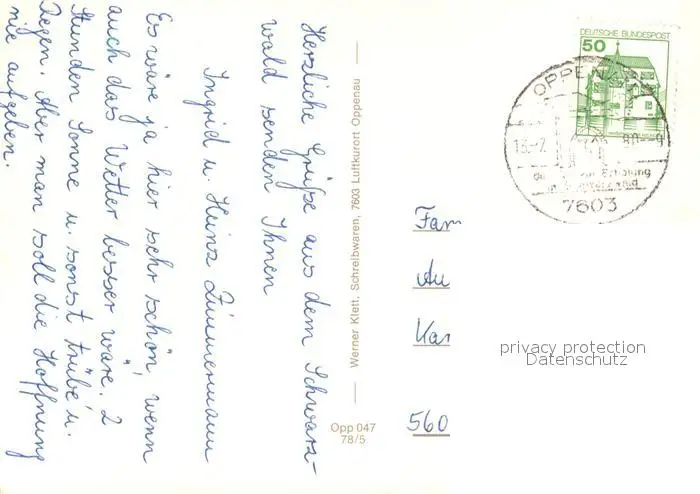 Herzliche Grüße aus dem Schwarz-
wald senden Ihnen
Ingrid u. Heinz Zimmermann
Es wäre ja hier sehr schön, wenn
auch das Wetter besser wäre. 2
Stunden Sonne u. sonst trübe u.
Regen. Aber man soll die Hoffnung
nie aufgeben.
Werner Klett, Schreibwaren, 7603 Luftkurort Oppenau
Opp 047
78/5
DEUTSCHE BUNDESPOST
50
OPPENAU
80
7603
Fam
Kar
560
privacy protection
Datenschutz